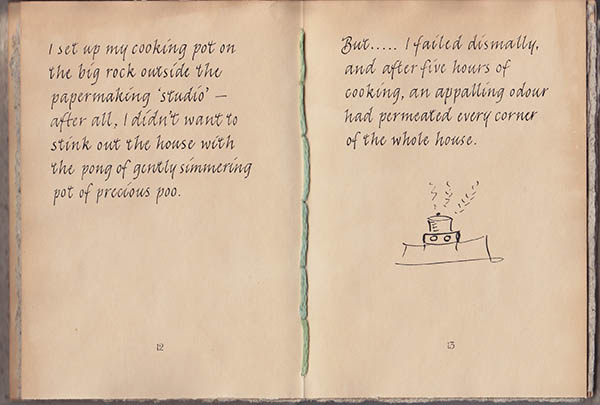 I set up my cooking pot on
the big rock outside the
papermaking 'studio' –
after all, I didn't want to
stink out the house with
the pong of gently simmering
pot of precious poo.
12
But..... I failed dismally,
and after five hours of
cooking, an appalling odour
had permeated every corner
of the whole house.
13